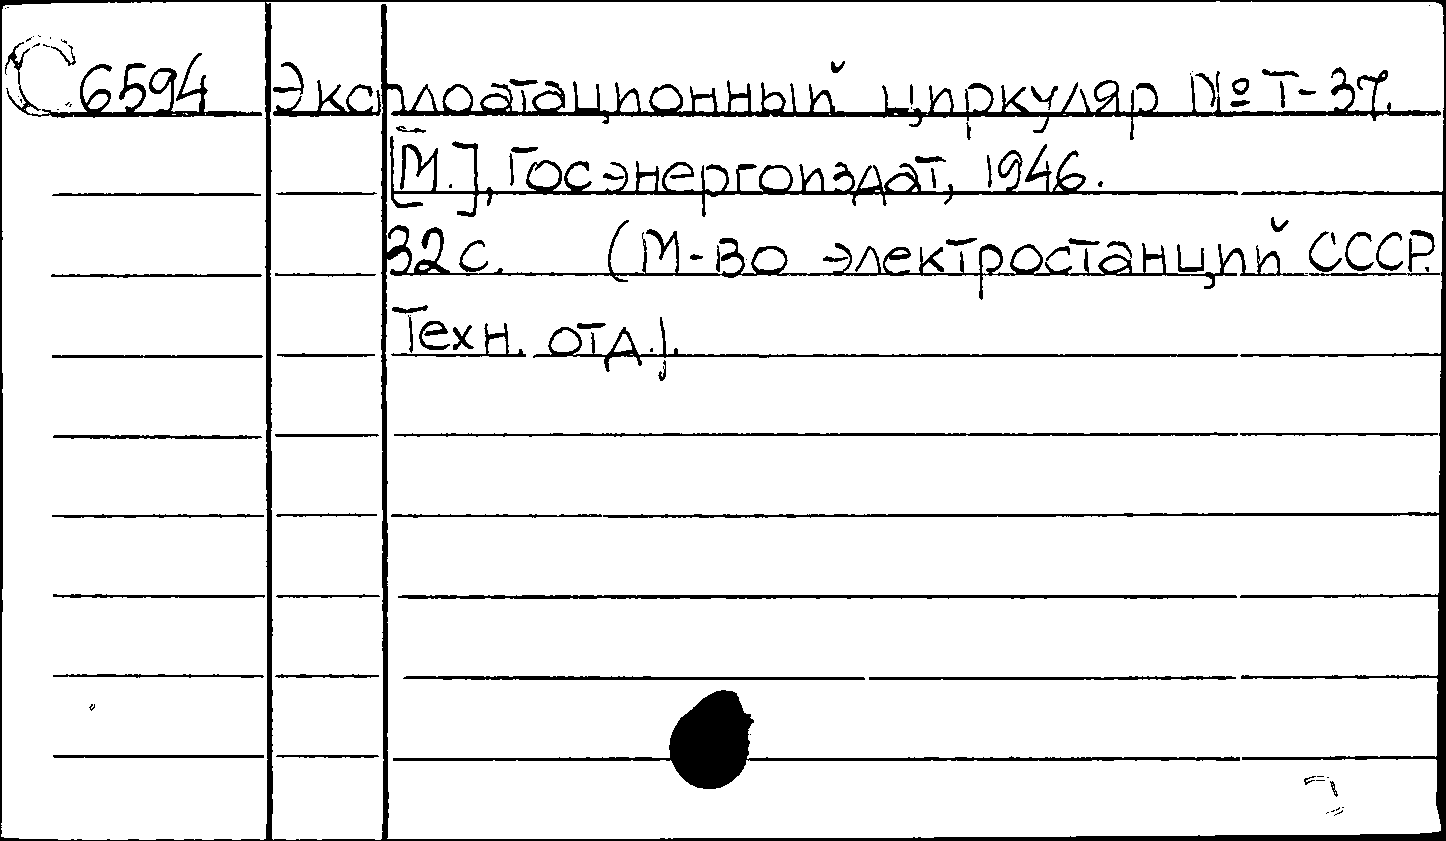 С6594 Эксплоатационный циркуляр № Т-37.
[М.], Госэнергоиздат, 1946.
32 с. (М-во электростанций СССР.
Техн. отд.).